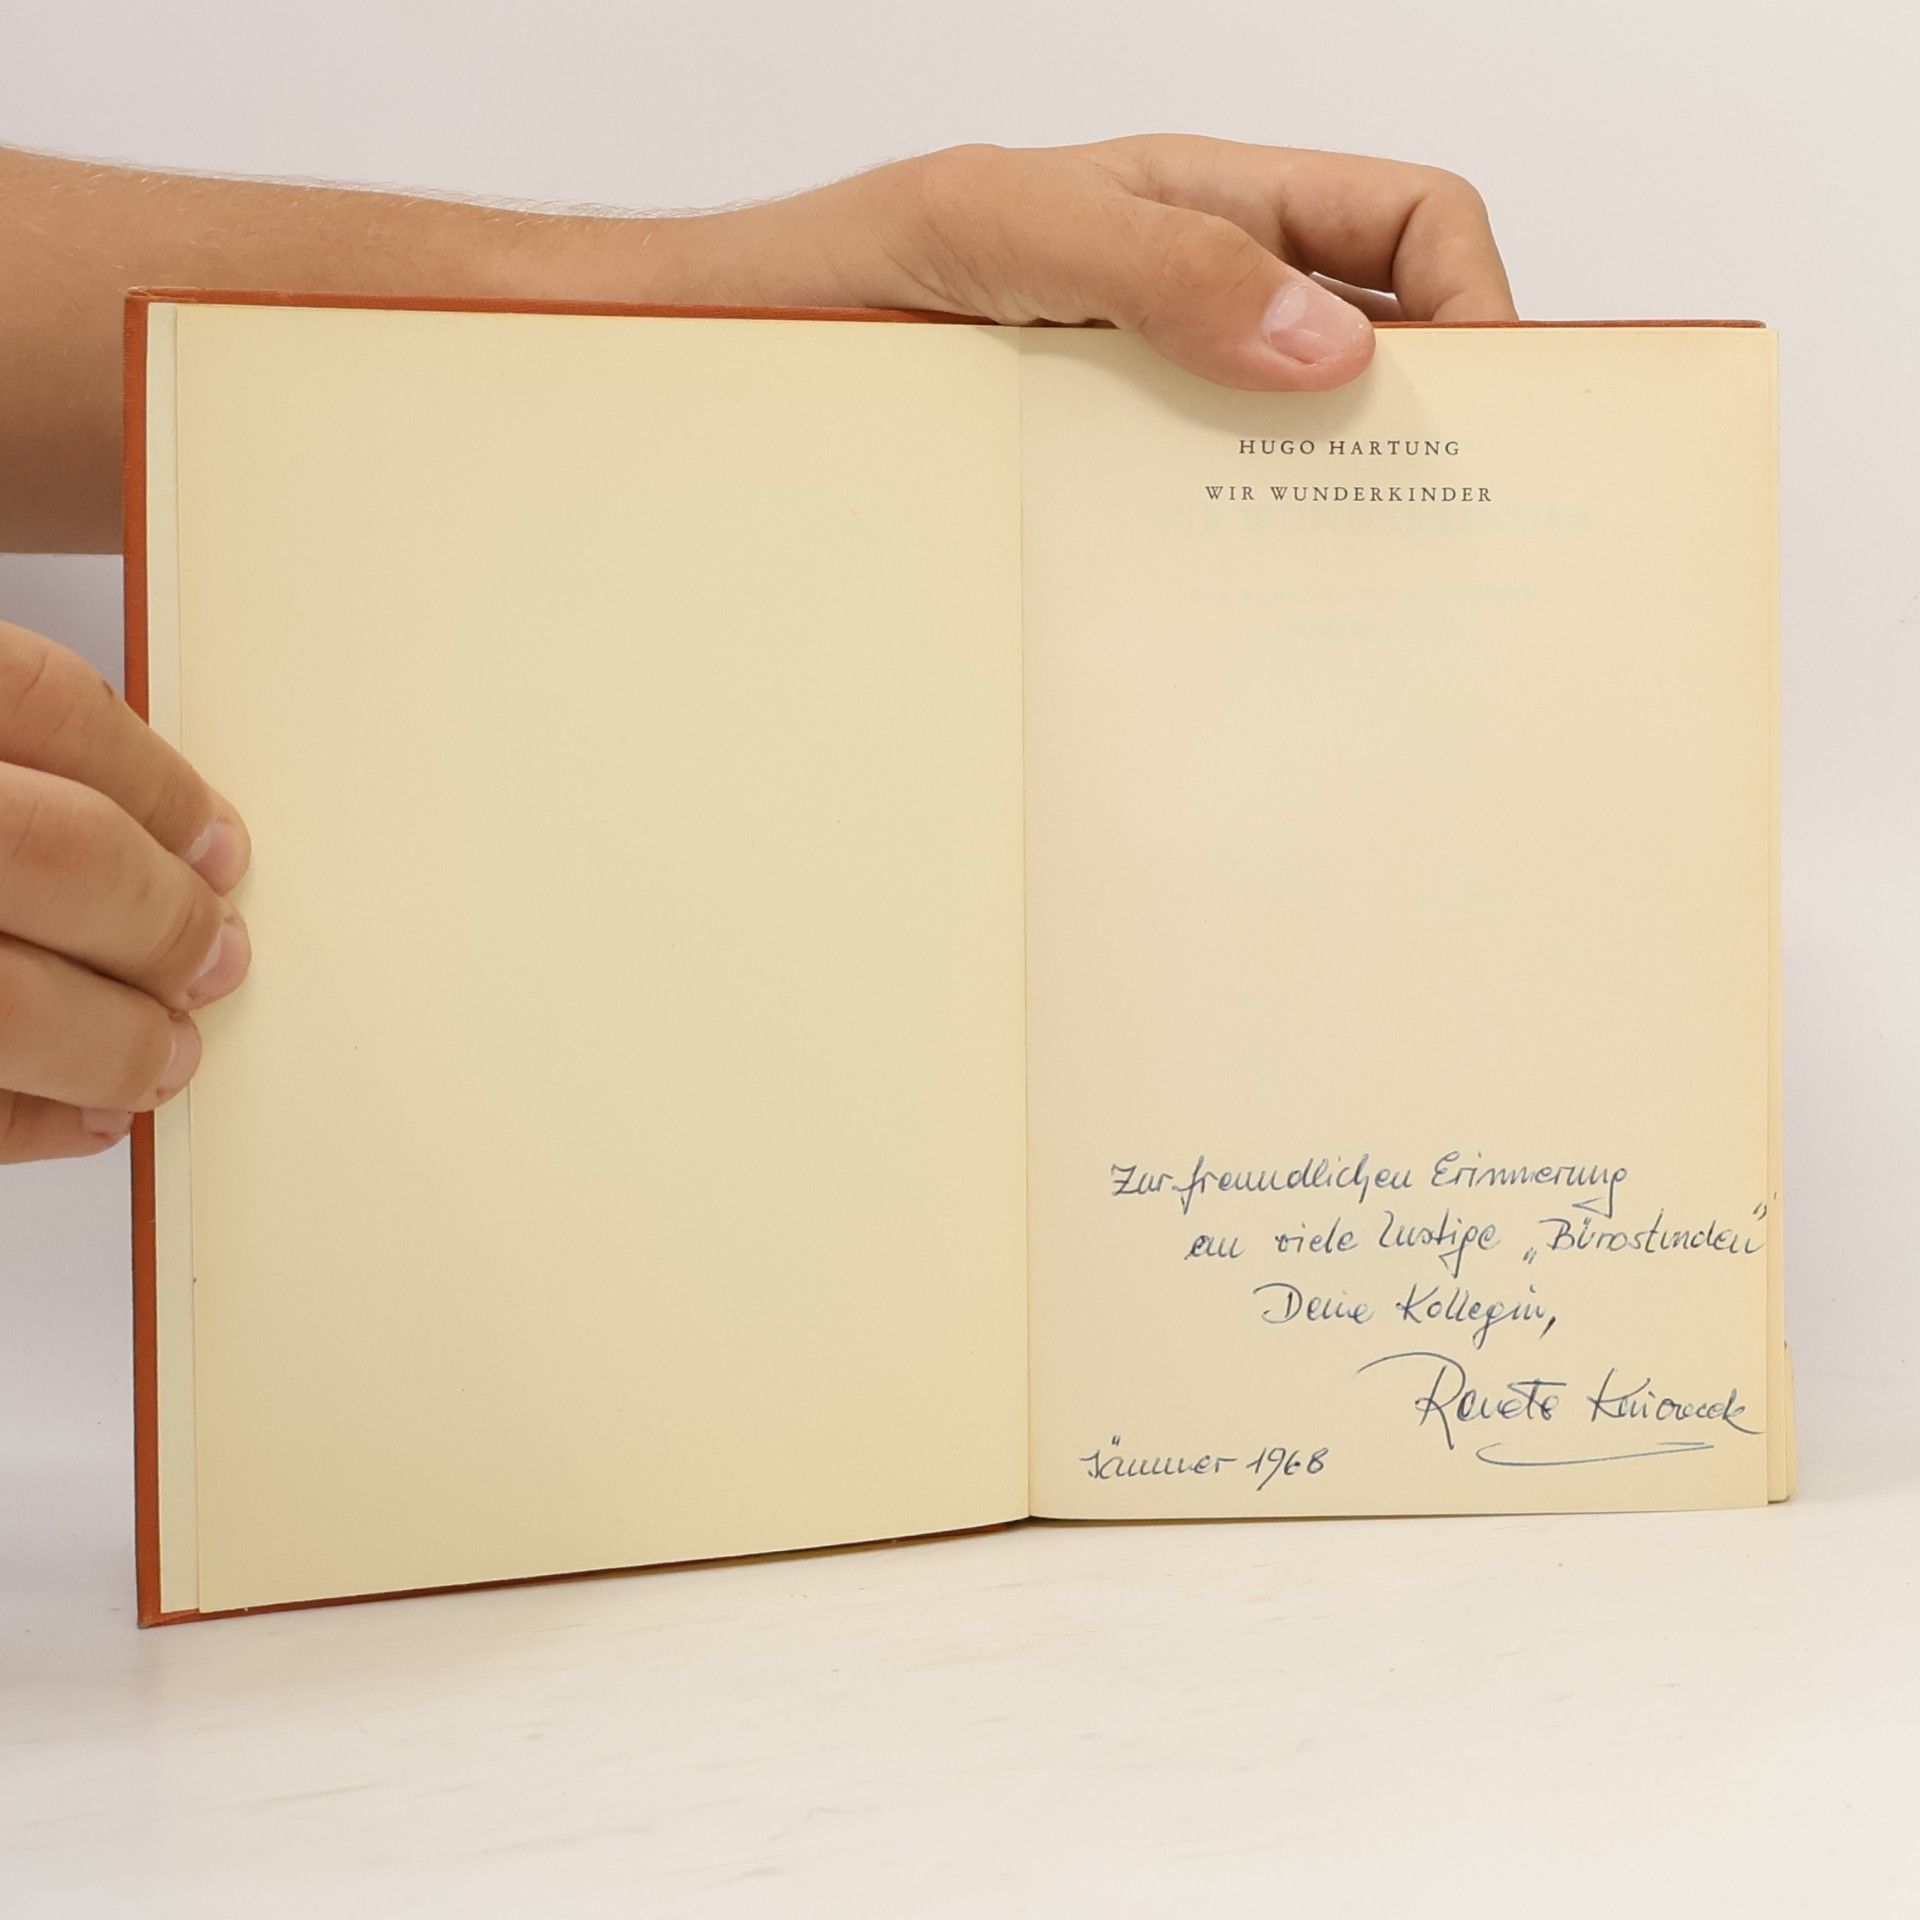 HUGO HARTUNG
WIR WUNDERKINDER
Zur freundlichen Erinnerung
an viele lustige „Bürostunden”
Deine Kollegin,
Renate
Jänner 1968